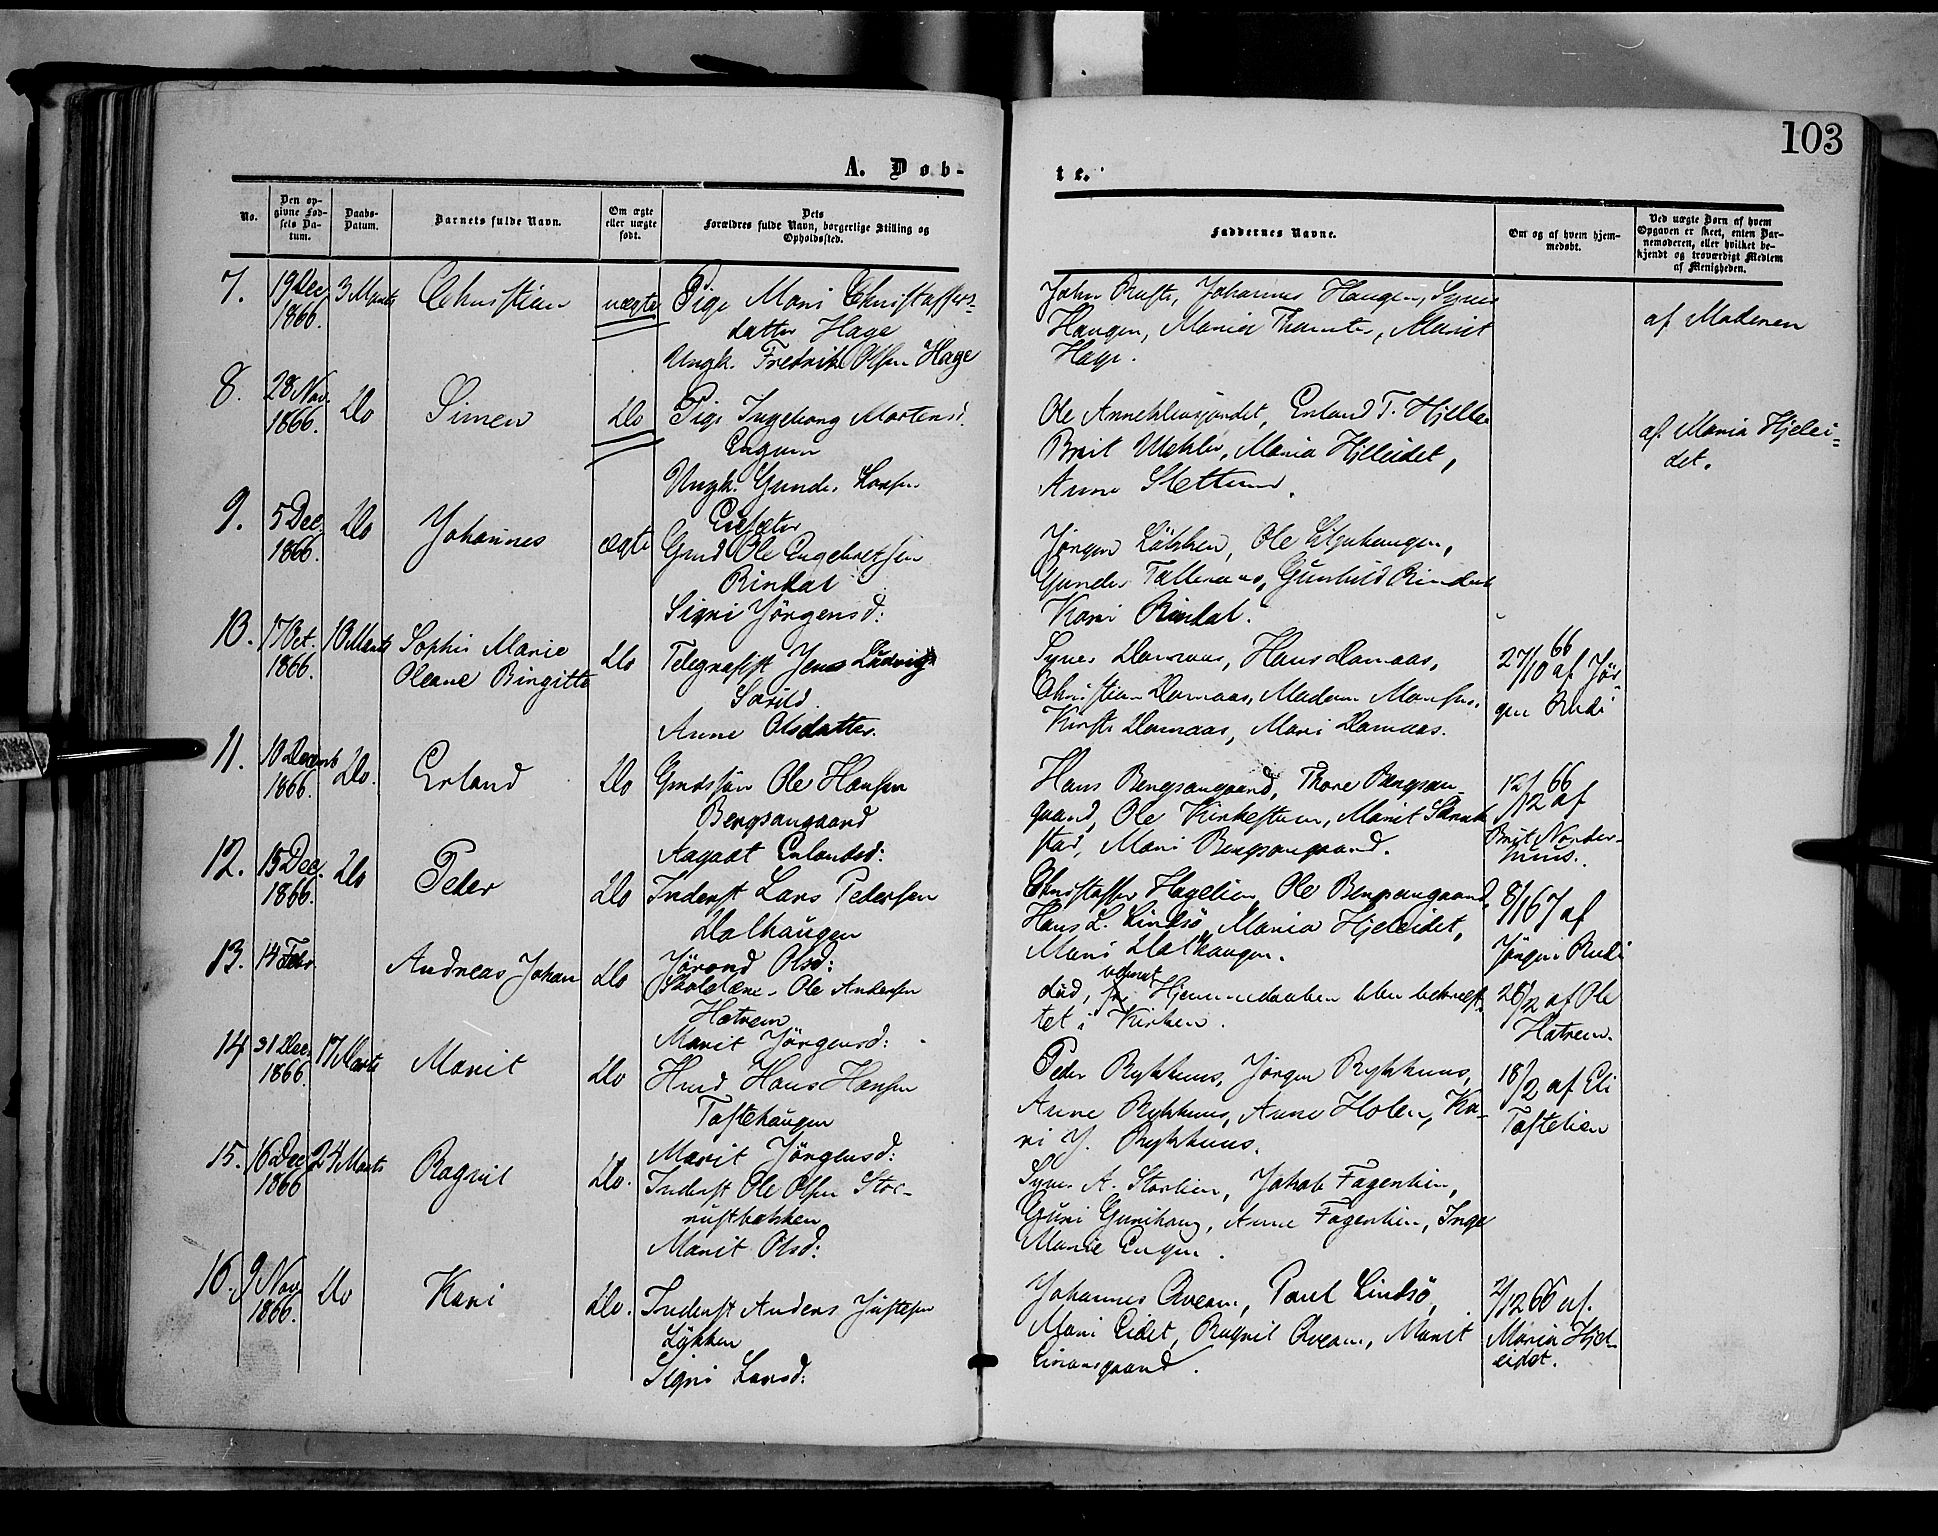 103
A. Døb-
te.
No.
Den op-
givne Fød-
sels Da-
tum.
Daabs-
Datum.
Barnets fulde Navn.
Om ægte
eller uægte
født.
Dets
Forældres fulde Navn, borgerlige Stilling og
Opholdssted.
Faddernes Navne.
Om og af hvem hjem-
medøbt.
Ved uægte Børn af hvem
Opgaven er skeet, enten Bar-
nemoderen, eller hvilket be-
kjendt og troværdigt Medlem
af Menigheden.
7.
19 Dec
1866.
3 Marts
Christian
uægte
Pige Mari Christaffers-
datter Hage
Ungk. Fredrik Olsen Hage
John Rusti, Johannes Haugen, Syver
Haugen, Maria, Marit
Hage.
af Moderen
8.
28 Nov.
1866.
Do
Simen
Do
Pige Ingeborg Mortensd.
Engum
Ungk. Gunder Larsen
Ole, Erland T. Hjelle
Brit, Maria Hjelleidet,
Anne.
af Maria Hjelei-
det.
9.
5 Dec.
1866.
Do
Johannes
ægte
Gmd Ole Engebretsen
Rindal
Sigri Jörgensd:
Jörgen Løkken, Ole,
Gunder, Gunhild Rindal
Kari Rindal.
10.
17 Oct.
1866.
10 Marts
Sophie Marie
Oleane Birgitte
Do
Telegrafist Jens Ludvig
Anne Olsdatter.
Syver Domaas, Hans Domaas,
Christian Domaas, Madam Monsen,
Kirsti Domaas, Mari Domaas.
27/10 66 af Jör-
gen Rudi
11.
10 Decemb
1866.
Do.
Erland
Do
Gmdssøn Ole Hansen
Bergsangaard
Aagaat Erlandsd:
Hans Bergsangaard, Thore Bergsan-
gaard, Ole Kirkestuen, Marit
stad, Mari Bergsangaard.
12/12 66 af
Brit Norder-
huus.
12.
15 Dec.
1866.
Do
Peder
Do
Inderst Lars Pedersen
Dalhaugen
Jörand Olsd:
Christoffer Hagelien, Ole Bergsangaard
Hans L. Lindsö, Maria Hjeleidet,
Mari Dalhaugen.
8/1 67 af
Jörgen Rudi
13.
14 Febr.
Andreas Johan
Do
Skolelærer Ole Andersen
Hatrem
Marit Jörgensd:
död, Hjemmedaaben blev bekræf-
tet i Kirken.
26/2 af Ole
Hatrem.
14
31 Dec.
1866.
17 Marts
Marit
Do
Hmd Hans Hansen
Toftehaugen
Marit Jörgensd:
Peder Rykhuus, Jörgen Rykhuus,
Anne Rykhuus, Anne Holen, Ka-
ri J. Rykhuus.
18/2 af Eli
Toftelien
15.
16 Dec
1866
24 Marts
Ragnil
Do.
Inderst Ole Olsen Stor-
rustbakken
Marit Olsd:
Syver A. Storlien, Jakob Fagerlien,
Guri Gunihaug, Anne Fagerlien, Inge
Marie Engen.
16.
9 Nov
1866.
Do
Kari
Do.
Inderst Anders Justesen
Løkken
Sigri Larsd:
Johannes, Paul Lindsö,
Mari Eidet, Ragnil, Marit
2/12 66 af.
Maria Hjel-
eidet.